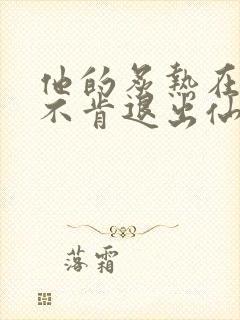 他的炙熱在
不肯退出仙
落霜